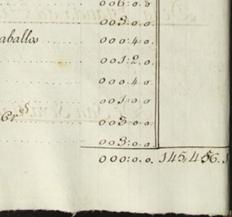 006:0.0
003:0.0.
aballos 000:4.0.
001:2.0.
000:4.0.
001:0.0
Cr.s 003:0.0.
003:0.0.
000:0.0. 145,456.